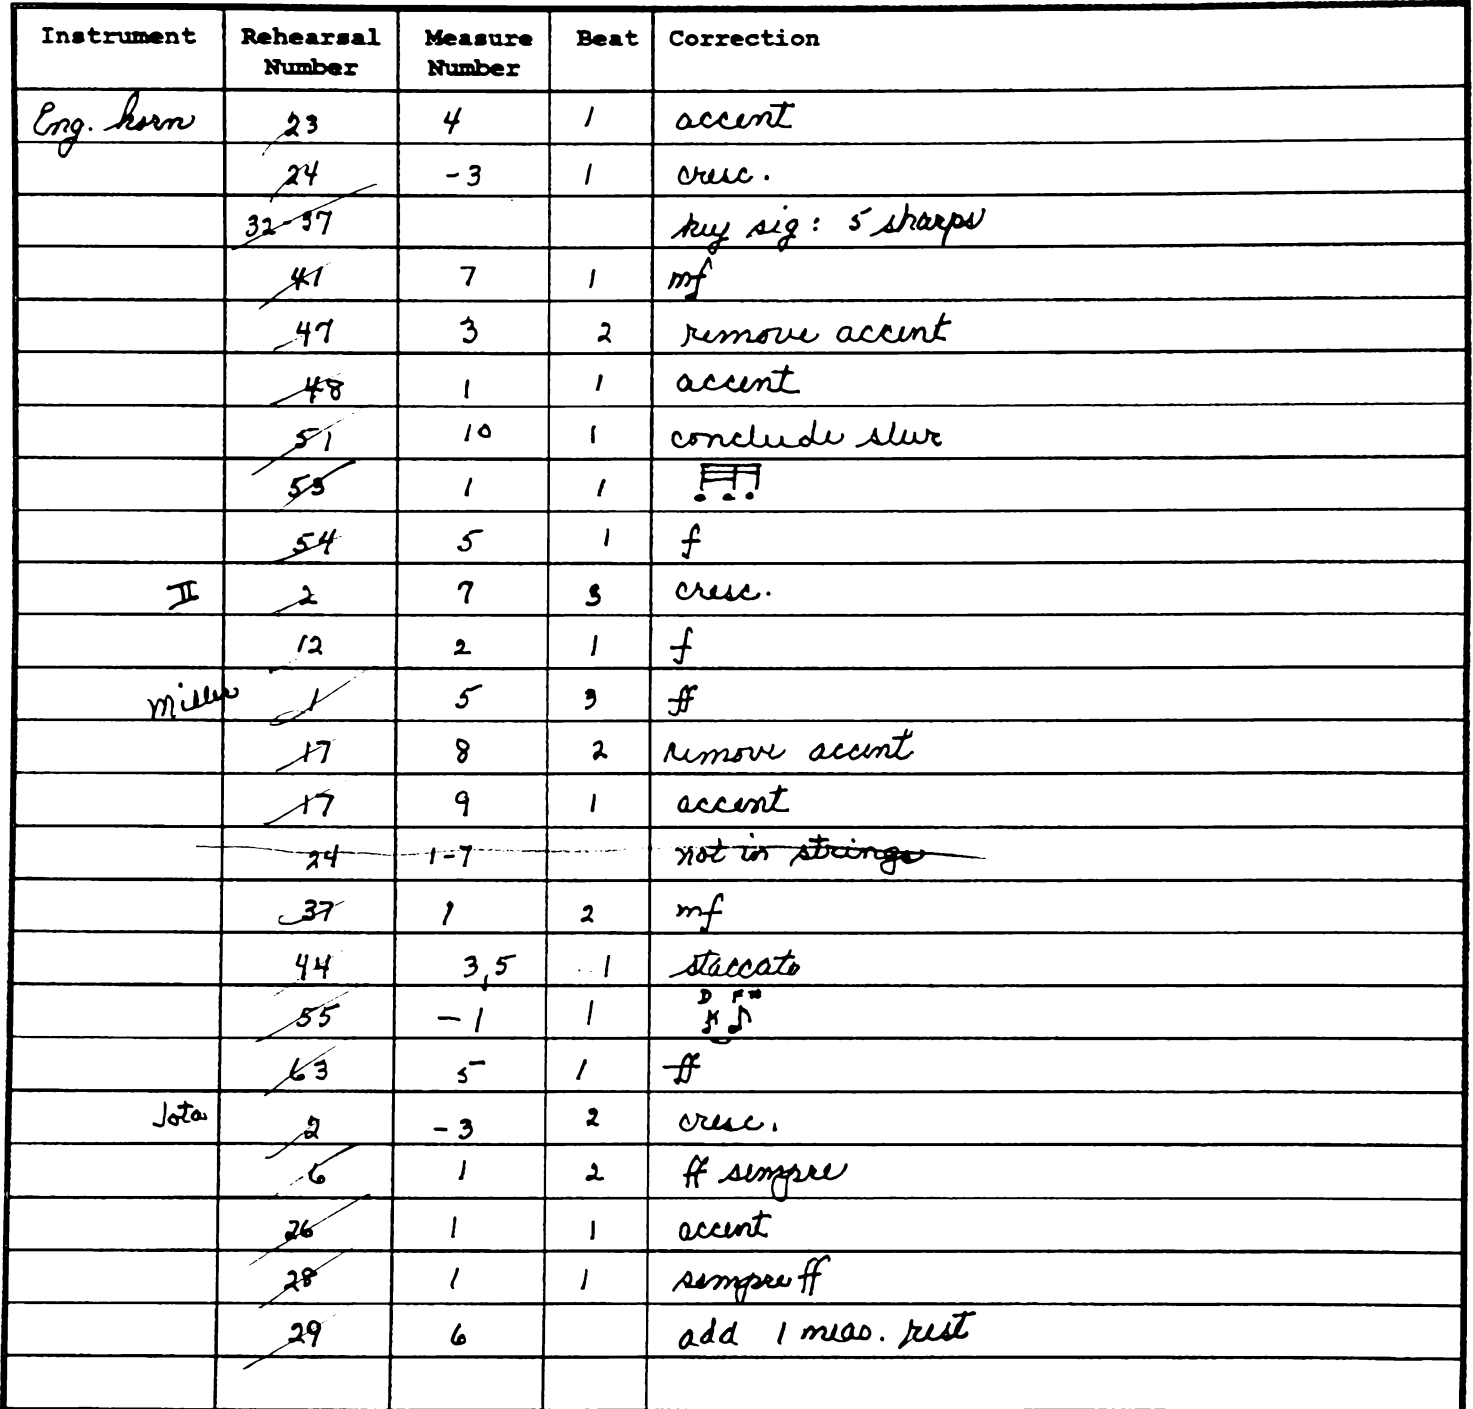 Instrument Rehearsal Number Measure Number Beat Correction
Eng. horn 23 4 1 accent
24 -3 1 cresc.
32-37 key sig: 5 sharps
41 7 1 mf
47 3 2 remove accent
48 1 1 accent
51 10 1 conclude slur
53 1 1
54 5 1 f
II 2 7 3 cresc.
12 2 1 f
Miller 1 5 3 ff
17 8 2 remove accent
17 9 1 accent
24 1-7 not in strings
37 1 2 mf
44 3,5 1 staccato
55 -1 1 D F#
63 5 1 ff
Jota 2 -3 2 cresc.
6 1 2 ff sempre
26 1 1 accent
28 1 1 sempre ff
29 6 add 1 meas. rest